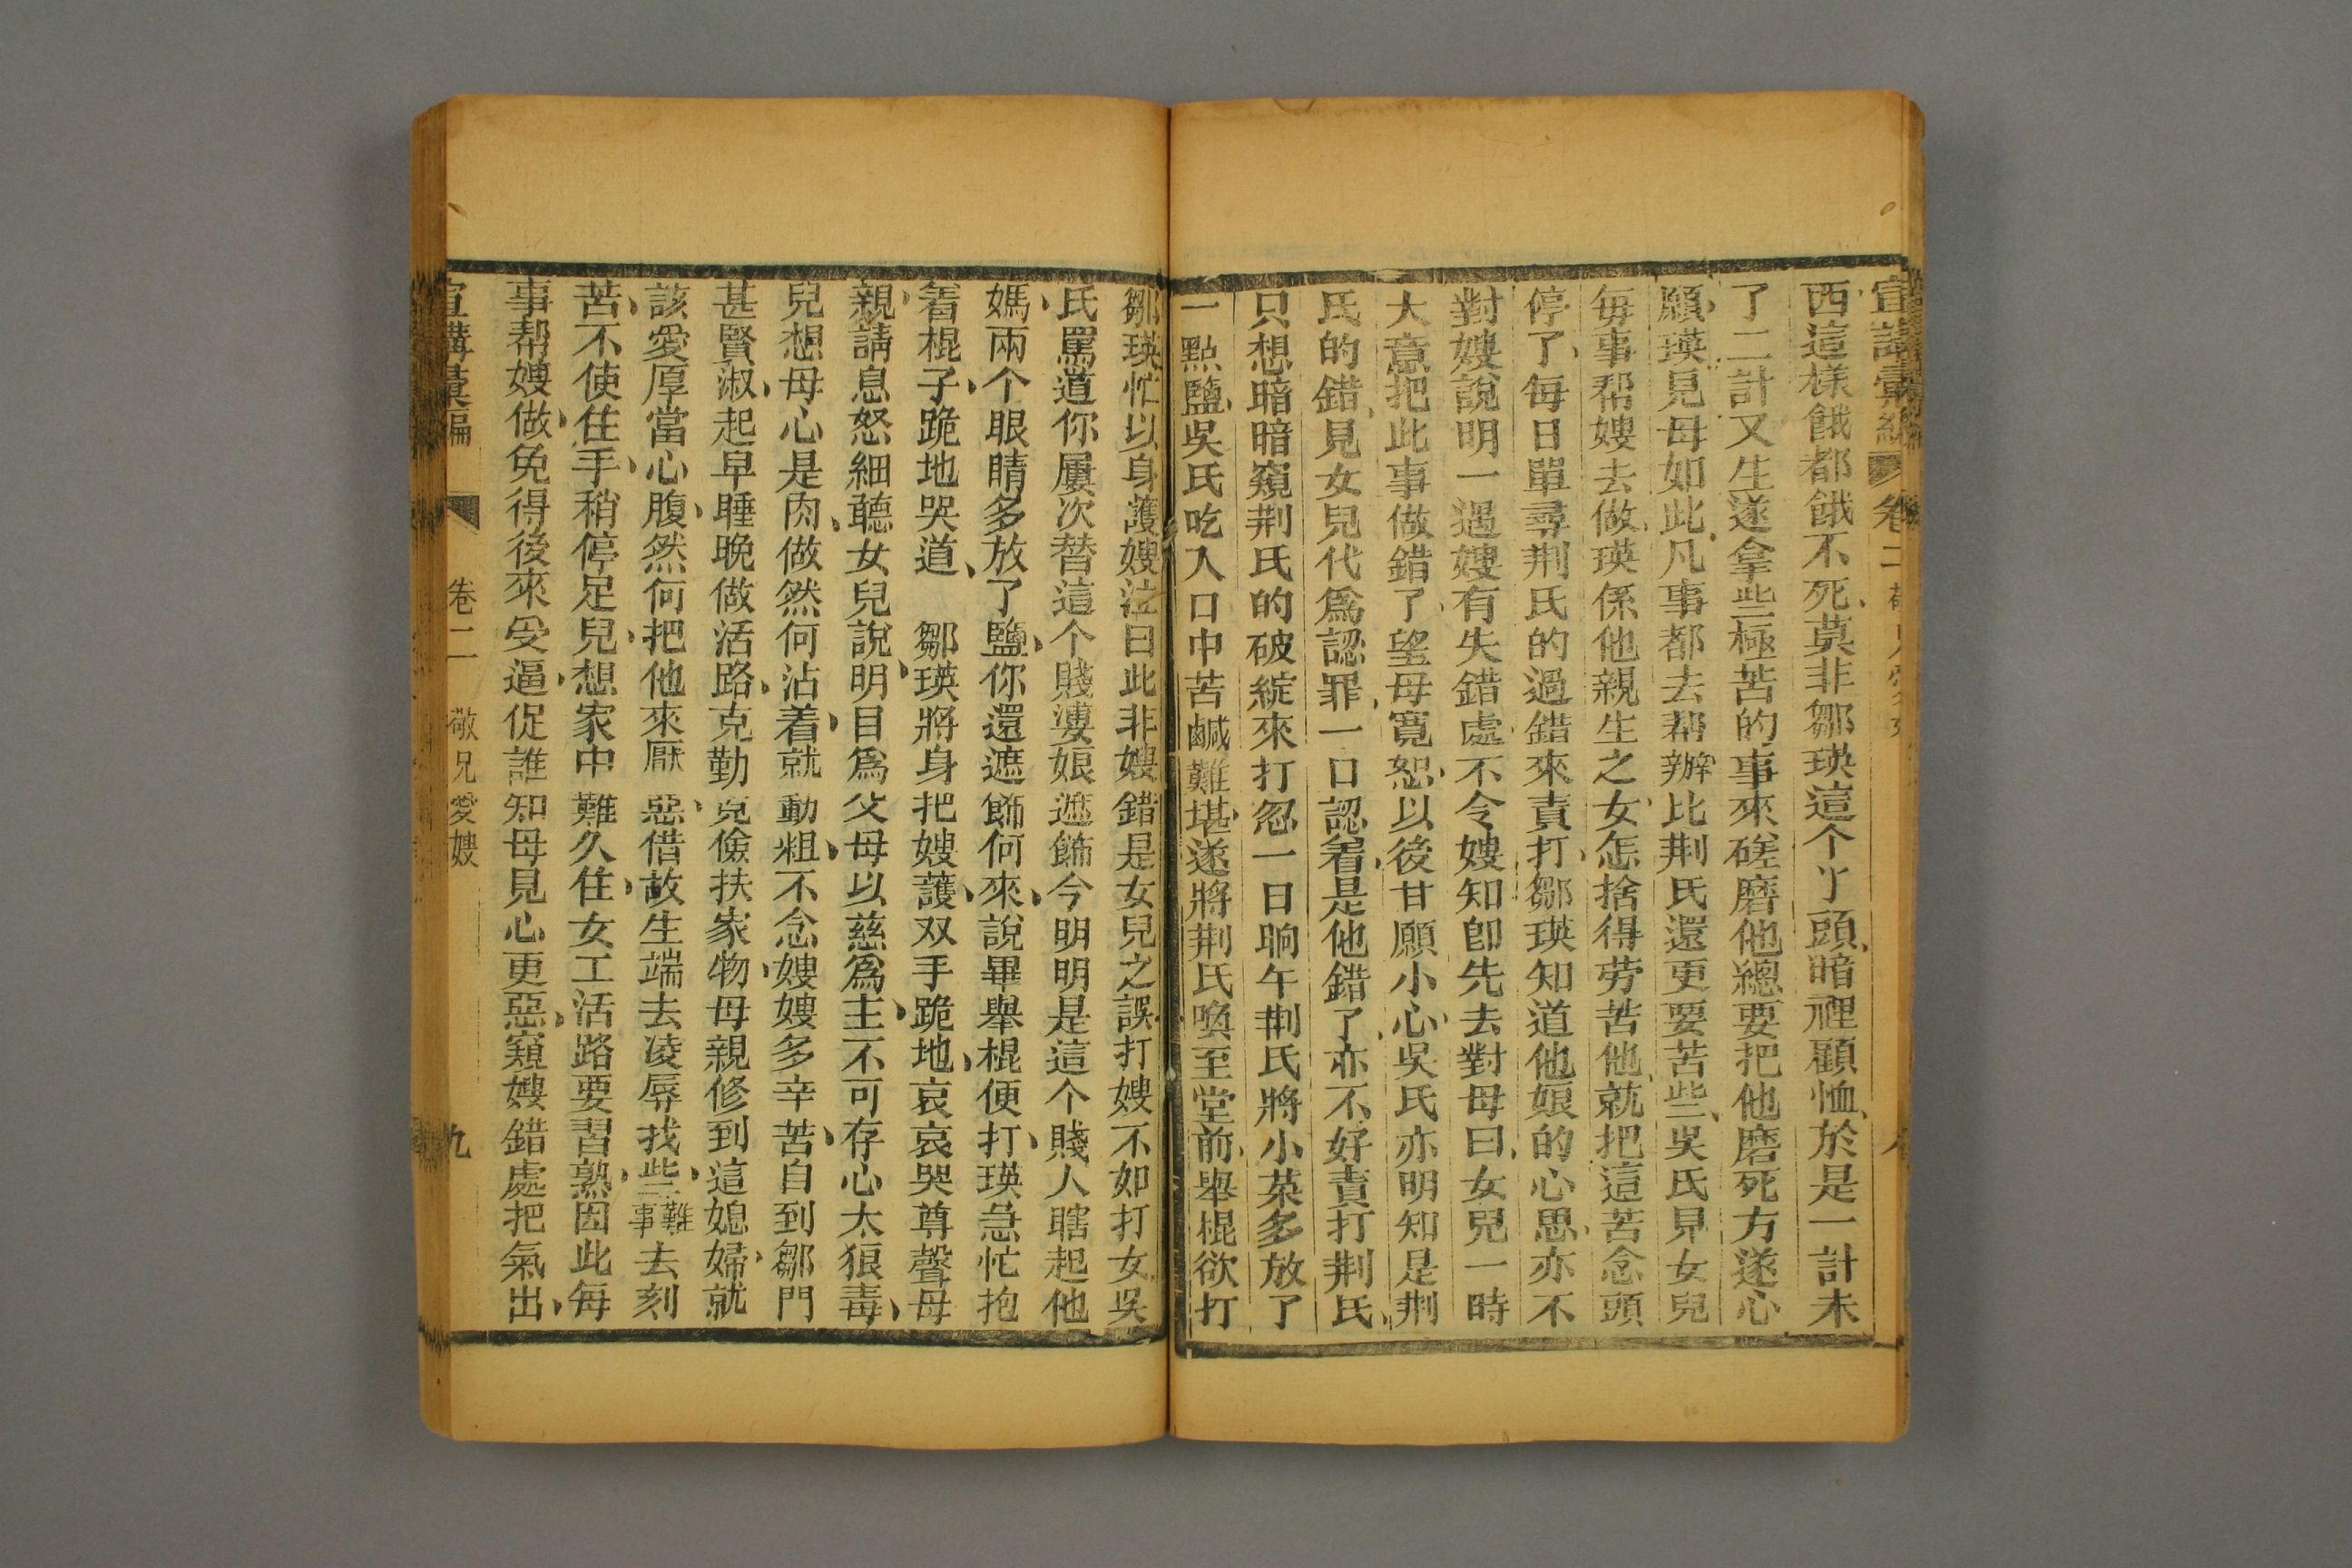 宣講彙編 卷二
西這樣餓都餓不死、莫非鄒瑛這个丫頭、暗裡顧恤、於是一計未
了二計又生遂拿些極苦的事來磋磨他總要把他磨死方遂心
願、瑛見母如此、凡事都去帮辦比荆氏還更要苦些、吳氏見女兒
每事帮嫂去做、瑛係他親生之女怎捨得劳苦他、就把這苦念頭
停了、每日單尋荆氏的過錯來責打、鄒瑛知道他娘的心思、亦不
對嫂說明一遇嫂有失錯處、不令嫂知卽先去對母曰、女兒一時
大意把此事做錯了、望母寬恕、以後甘願小心、吳氏亦明知是荆
氏的錯、見女兒代爲認罪、一口認着、是他錯了、亦不好責打荆氏、
只想暗暗窺荆氏的破綻來打忽一日晌午荆氏將小菜多放了
一點鹽、吳氏吃入口中苦鹹難堪、遂將荆氏喚至堂前、舉棍欲打
鄒瑛忙以身護嫂泣曰此非嫂錯是女兒之誤打嫂不如打女吳
氏罵道你屢次替這个賤婆娘遮飾今明明是這个賤人瞎起他
媽兩个眼睛多放了鹽、你還遮飾何來、說畢舉棍便打、瑛急忙抱
着棍子、跪地哭道、 鄒瑛將身把嫂護、双手跪地、哀哀哭尊聲母
親、請息怒細聽女兒說、明目爲父母以慈爲主、不可存心太狼毒、
兒想母心是肉、做然何沾着、就動粗、不念嫂嫂多辛苦、自到鄒門
甚賢淑、起早睡晚做活路、克勤克儉扶家物、母親修到這媳婦、就
該愛厚當心腹、然何把他來厭惡、借故生端去凌辱找些、難事去刻
苦、不使住手、稍停足兒、想家中難久住、女工活路要習熟、因此每
事帮嫂做、免得後來受逼、促誰知母見心更惡、窺嫂錯處把氣出、
宣講彙編 卷二 敬兄愛嫂 九